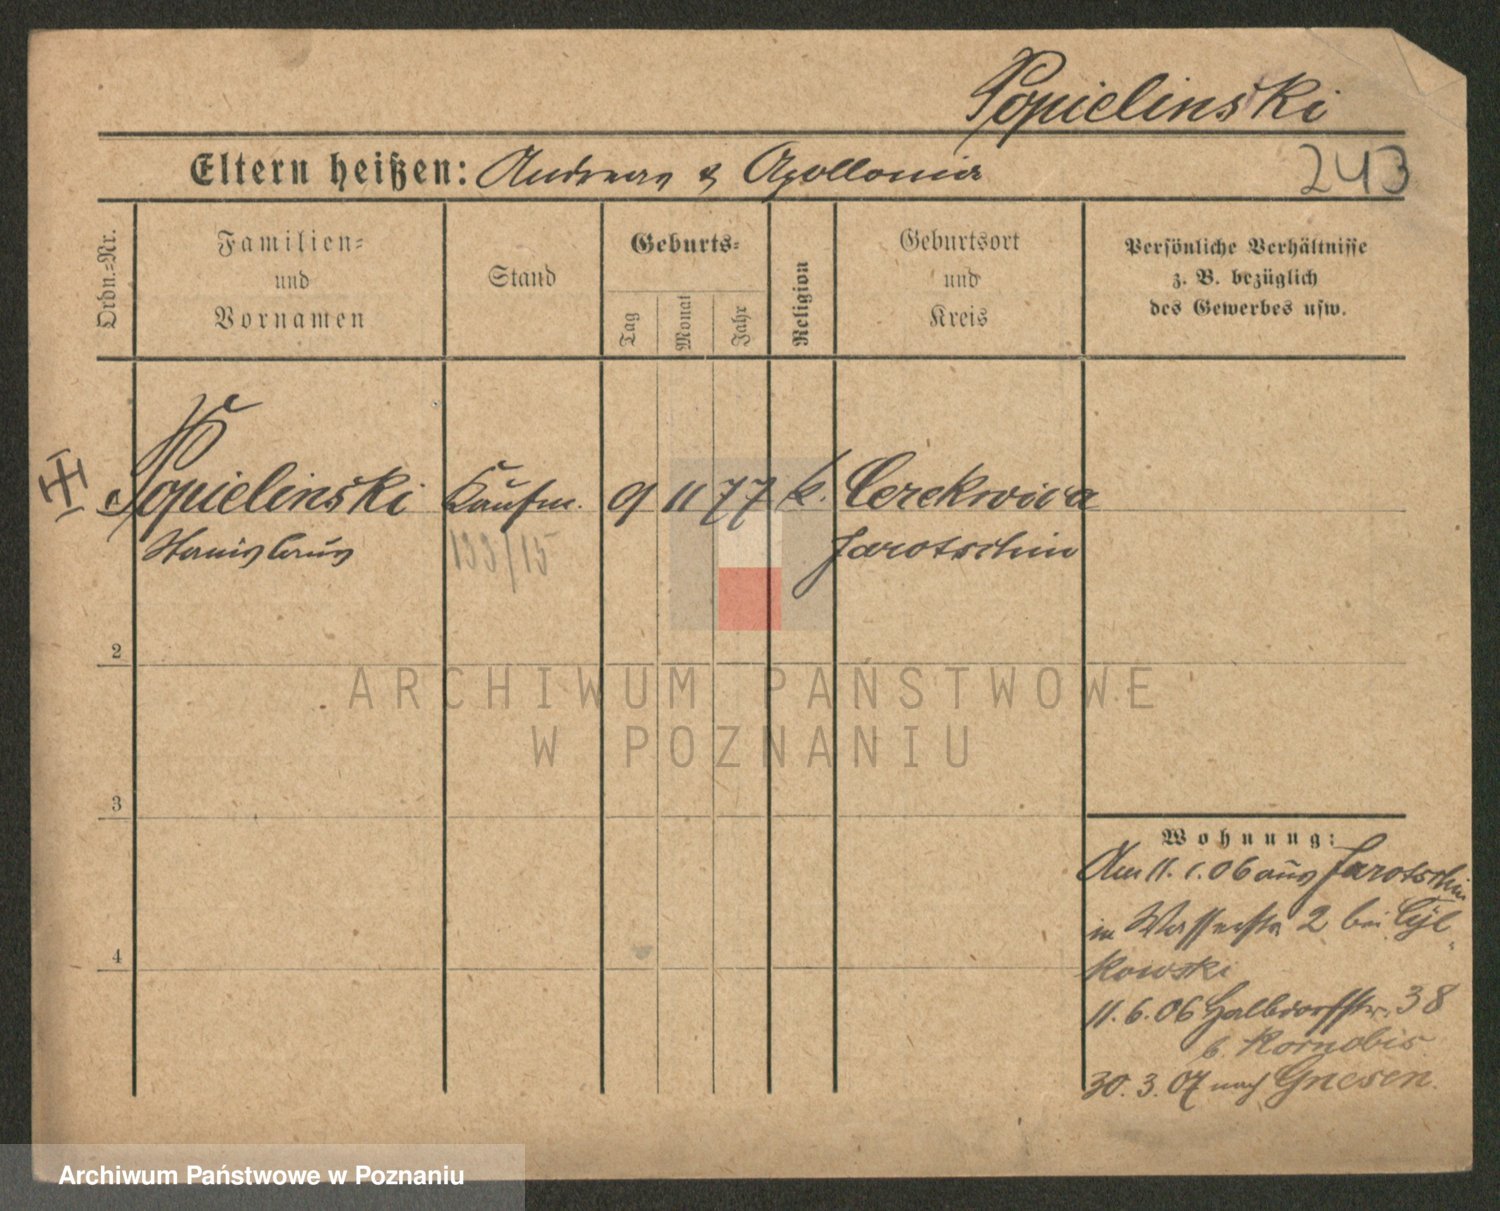 Popielinski
Eltern heißen: Andreas & Apollonia
243
Ordn.=Nr.
Familien=
und
Vornamen
Stand
Geburts=
Tag
Monat
Jahr
Religion
Geburtsort
und
Kreis
Persönliche Verhältnisse
z. B. bezüglich
des Gewerbes usw.
Popielinski Kaufm. 9 11 77 k. Cerekwica
Stanislaus 133/15 Jarotschin
2
3
4
ARCHIWUM PAŃSTWOWE
W POZNANIU
Wohnung:
Am 11. 1. 06 aus Jarotschin
in Wasserstr 2 bei Cyl-
kowski
11. 6. 06 Halbdorfstr. 38
b. Kornobis
30. 3. 07 nach Gnesen.
Archiwum Państwowe w Poznaniu